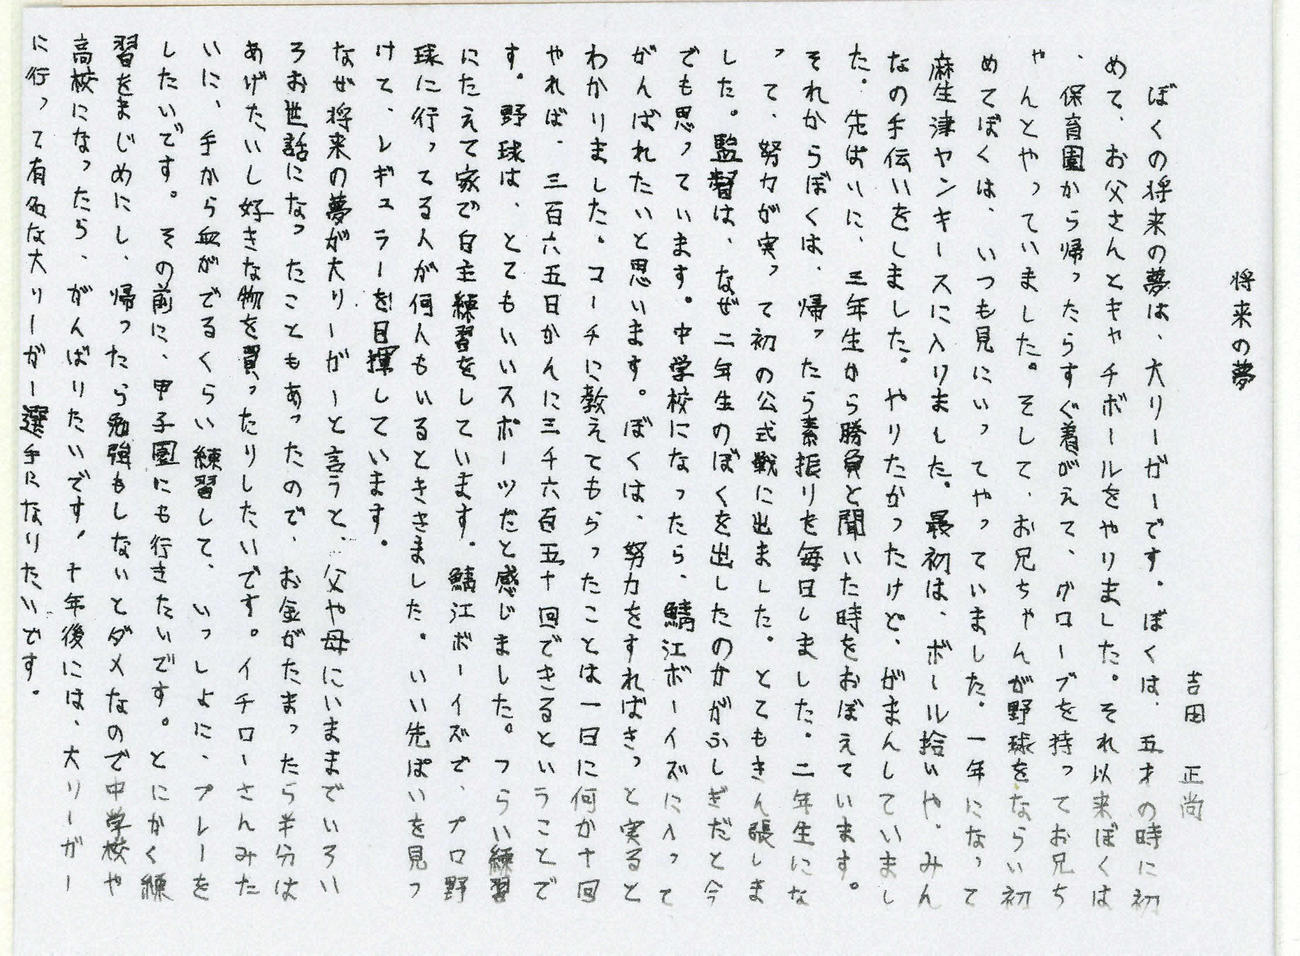 将来の夢
吉田 正尚
ぼくの将来の夢は、大リーガーです。ぼくは、五才の時に初
めて、お父さんとキャチボールをやりました。それ以来ぼくは
、保育園から帰ったらすぐ着がえて、グローブを持ってお兄ち
ゃんとやっていました。そして、お兄ちゃんが野球をならい初
めてぼくは、いつも見にいってやっていました。一年になって
麻生津ヤンキースに入りました。最初は、ボール拾いや、みん
なの手伝いをしました。やりたかったけど、がまんしていまし
た。先ぱいに、三年生から勝負と聞いた時をおぼえています。
それからぼくは、帰ったら素振りを毎日しました。二年生にな
って、努力が実って初の公式戦に出ました。とてもきん張しま
した。監督は、なぜ二年生のぼくを出したのかがふしぎだと今
でも思っています。中学校になったら、鯖江ボーイズに入って
がんばれたいと思います。ぼくは、努力をすればきっと実ると
わかりました。コーチに教えてもらったことは一日に何か十回
やれば、三百六五日かんに三千六百五十回できるということで
す。野球は、とてもいいスポーツだと感じました。つらい練習
にたえて家で自主練習をしています。鯖江ボーイズで、プロ野
球に行ってる人が何人もいるとききました。いい先ぱいを見つ
けて、レギュラーを目揮しています。
なぜ将来の夢が大リーガーと言うと、父や母にいままでいろい
ろお世話になったこともあったので、お金がたまったら半分は
あげたいし好きな物を買ったりしたいです。イチローさんみた
いに、手から血がでるくらい練習して、いっしょに、プレーを
したいです。その前に、甲子園にも行きたいです。とにかく練
習をまじめにし、帰ったら勉強もしないとダメなので中学校や
高校になったら、がんばりたいです。十年後には、大リーガー
に行って有名な大リーガー選手になりたいです。